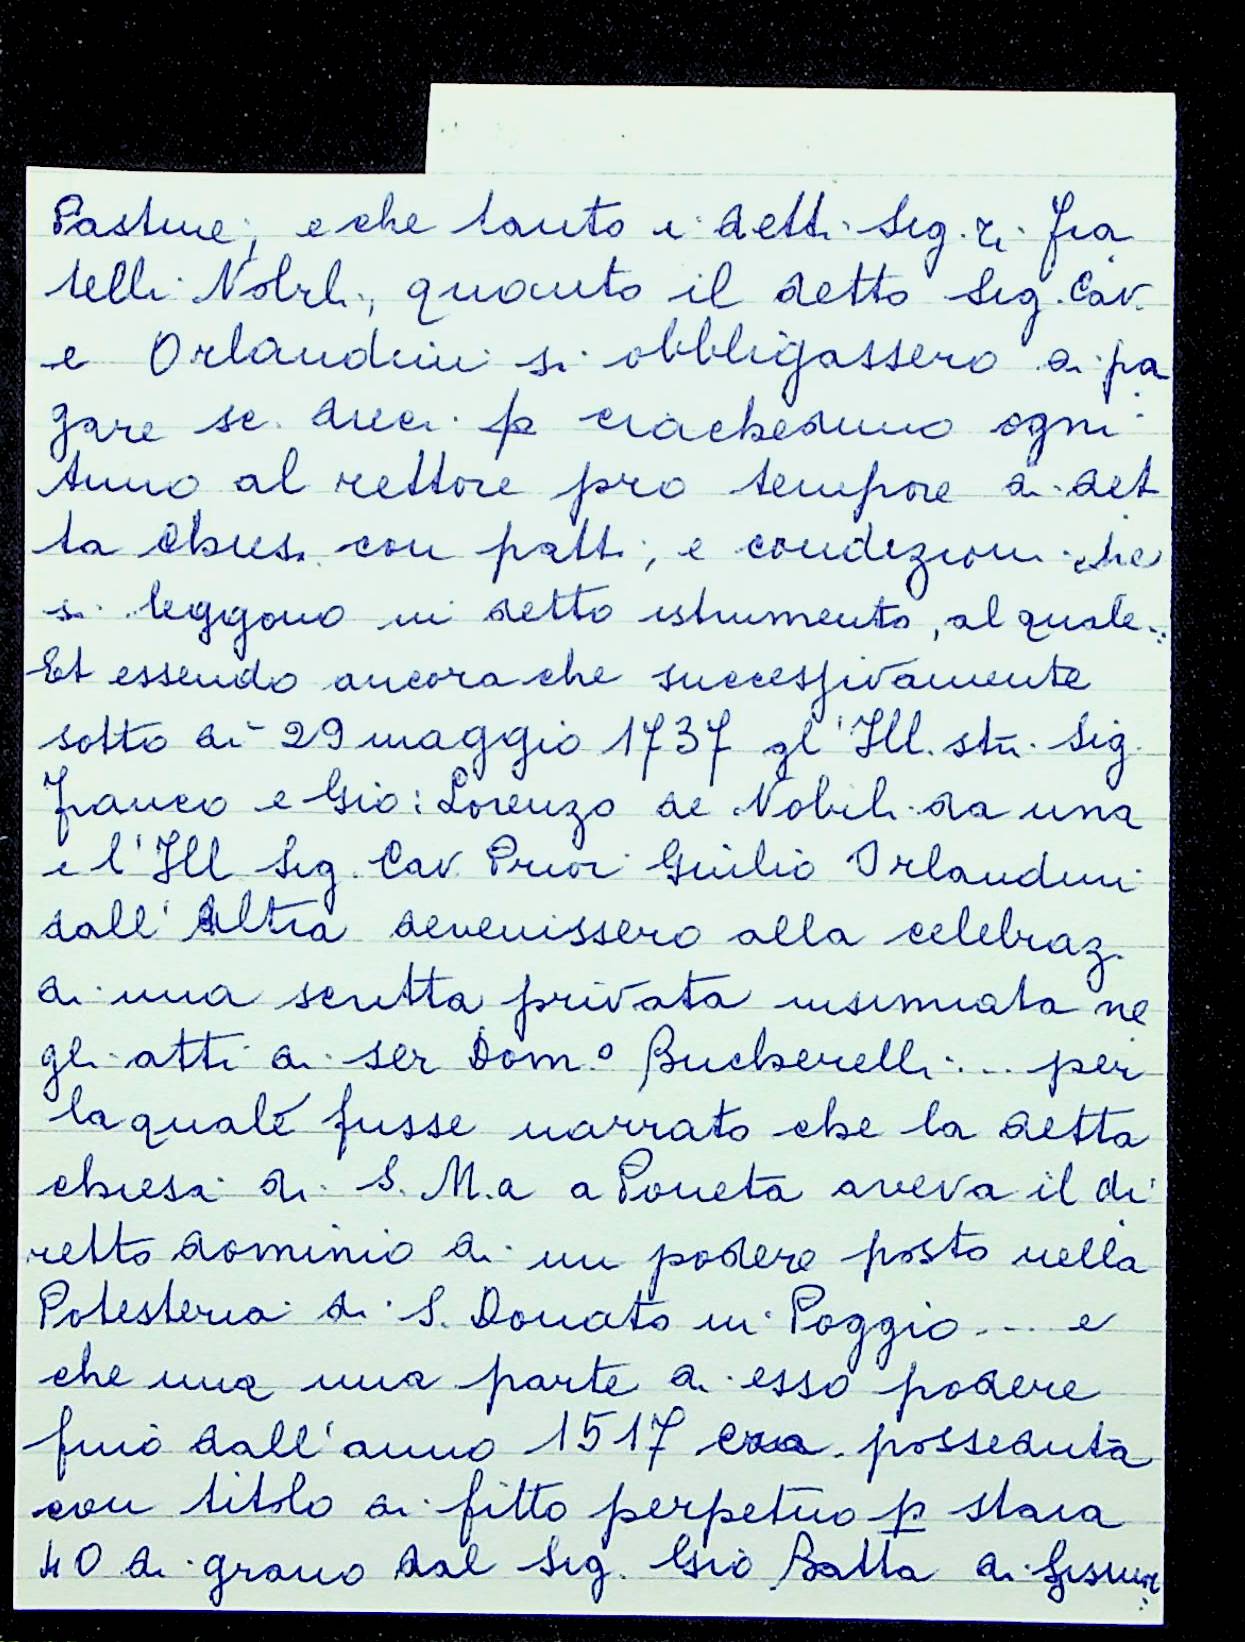 Pastine; e che tanto i detti Sig.ri fra
telli Nobili, quanto il detto Sig. Cav.
e Orlandini si obbligassero di pa
gare sc. dieci p ciascheduno ogni
Anno al rettore pro tempore di det
ta chiesa con patti, e condizioni che
si leggono in detto istrumento, al quale..
Et essendo ancora che successivamente
sotto dì 29 maggio 1737 gl'Ill.stri Sig.
Franco e Gio: Lorenzo de Nobili da una
e l'Ill Sig. Cav. Prior Giulio Orlandini
dall'Altra devenissero alla celebraz.
di una scritta privata insinuata ne
gli atti di ser Dom.º Bucherelli ... per
la quale fusse narrato che la detta
chiesa di S. M.a a Poneta aveva il di
retto dominio di un podere posto nella
Potesteria di S. Donato in Poggio .... e
che una una parte di esso podere
fino dall'anno 1517 era posseduta
con titolo di fitto perpetuo p staia
40 di grano dal Sig. Gio Batta di